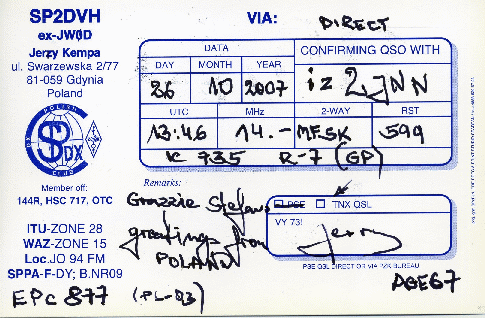 SP2DVH
ex-JWØD
Jerzy Kempa
ul. Swarzewska 2/77
81-059 Gdynia
Poland
POLISH
SP DX
CLUB
Member off:
144R, HSC 717, OTC
ITU-ZONE 28
WAZ-ZONE 15
Loc.JO 94 FM
SPPA-F-DY; B.NR09
EPC 877 (PL-03)
VIA: DIRECT
DATA CONFIRMING QSO WITH
DAY MONTH YEAR
26 10 2007 iz2JNN
UTC MHz 2-WAY RST
13:46 14.- MFSK 599
ic 735 R-7 (GP)
Remarks:
Grazzie Stefano
greetings from
POLAND
PSE TNX QSL
VY 73!
Jerry
PSE QSL DIRECT OR VIA PZK BUREAU
AGE67